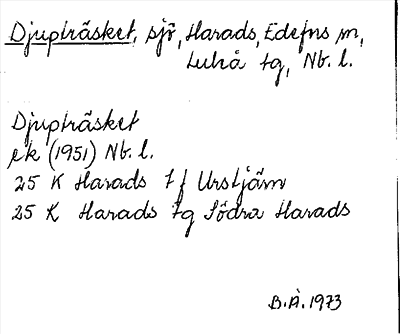 Djupträsket, sjö, Harads, Edefors sn,
Luleå tg, Nb. l.
Djupträsket
ek (1951) Nb. l.
25 K Harads 7 f Urstjärn
25 K Harads 7 g Södra Harads
B.Å. 1973